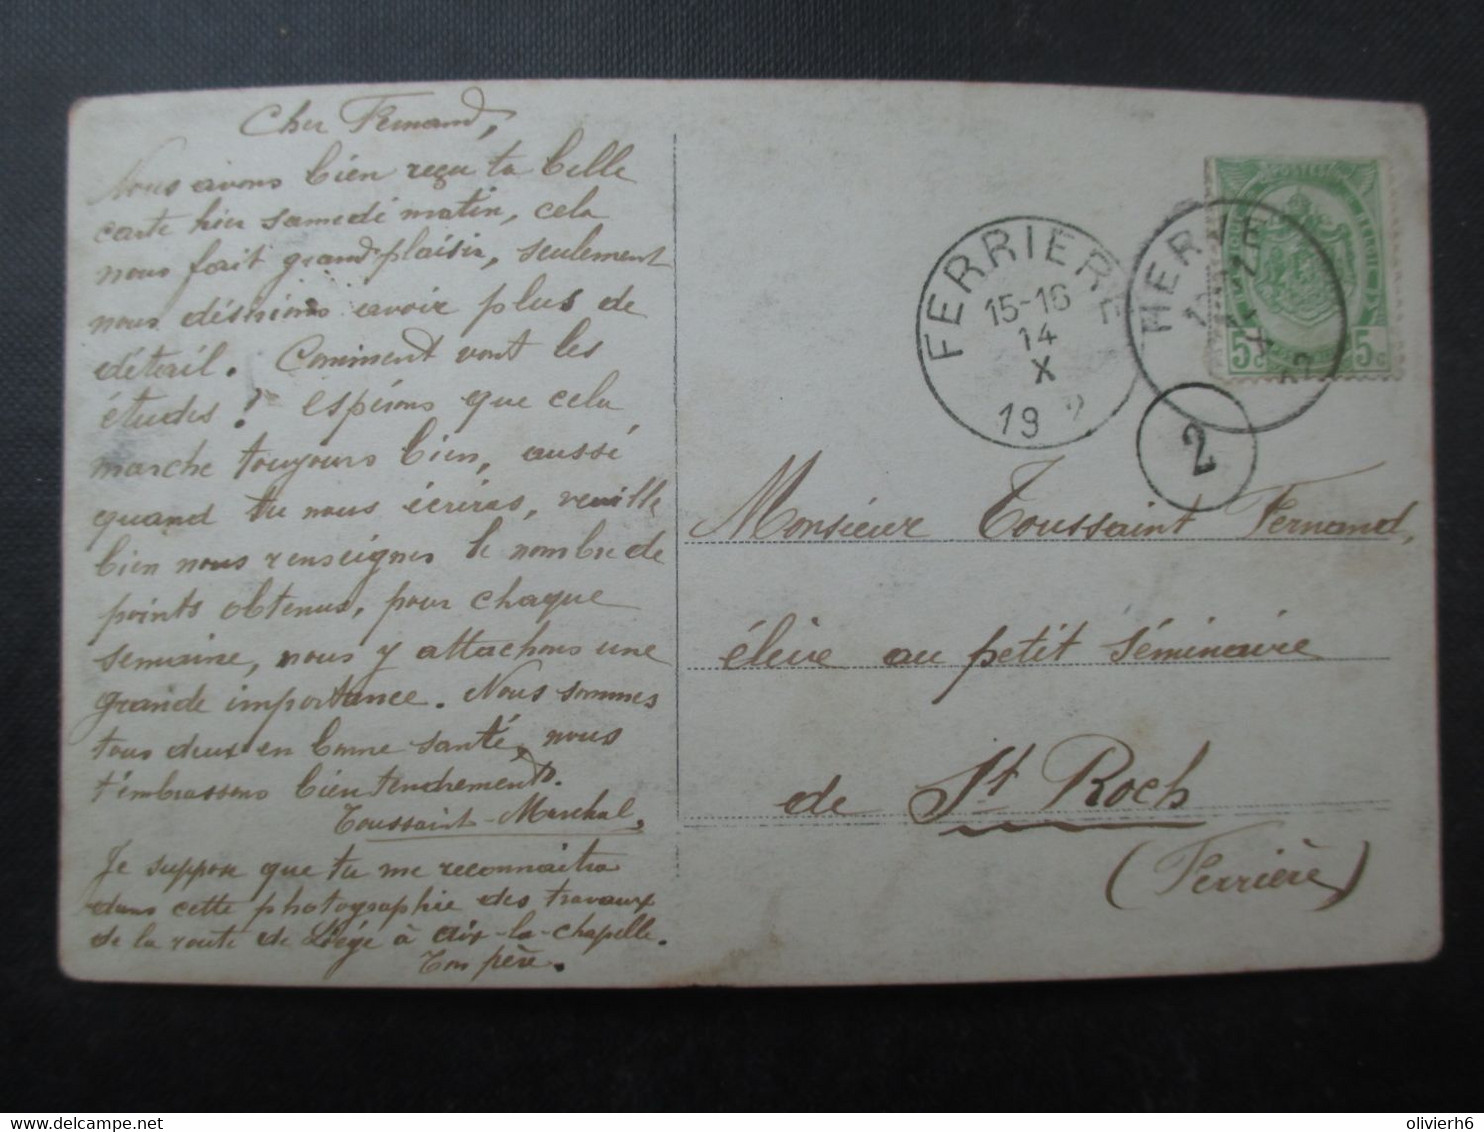 Cher Fernand,
Nous avons bien reçu ta belle
carte hier samedi matin, cela
nous fait grand plaisir, seulement
nous désirions avoir plus de
détail. Comment vont les
études! espérons que cela
marche toujours bien, aussi
quand tu nous écriras, veuille
bien nous renseigner le nombre de
points obtenus, pour chaque
semaine, nous y attachons une
grande importance. Nous sommes
tous deux en bonne santé, nous
t'embrassons bien tendrement.
Toussaint-Marchal.
Je suppose que tu me reconnaitra
dans cette photographie des travaux
de la route de Liége à Aix-la-chapelle.
Ton père.
FERRIERE
15-16
14
X
19 2
HERVE
POSTES
5c 5c
2
Monsieur Toussaint Fernand,
élève au petit séminaire
de St Roch
(Ferrière)
olivierh6